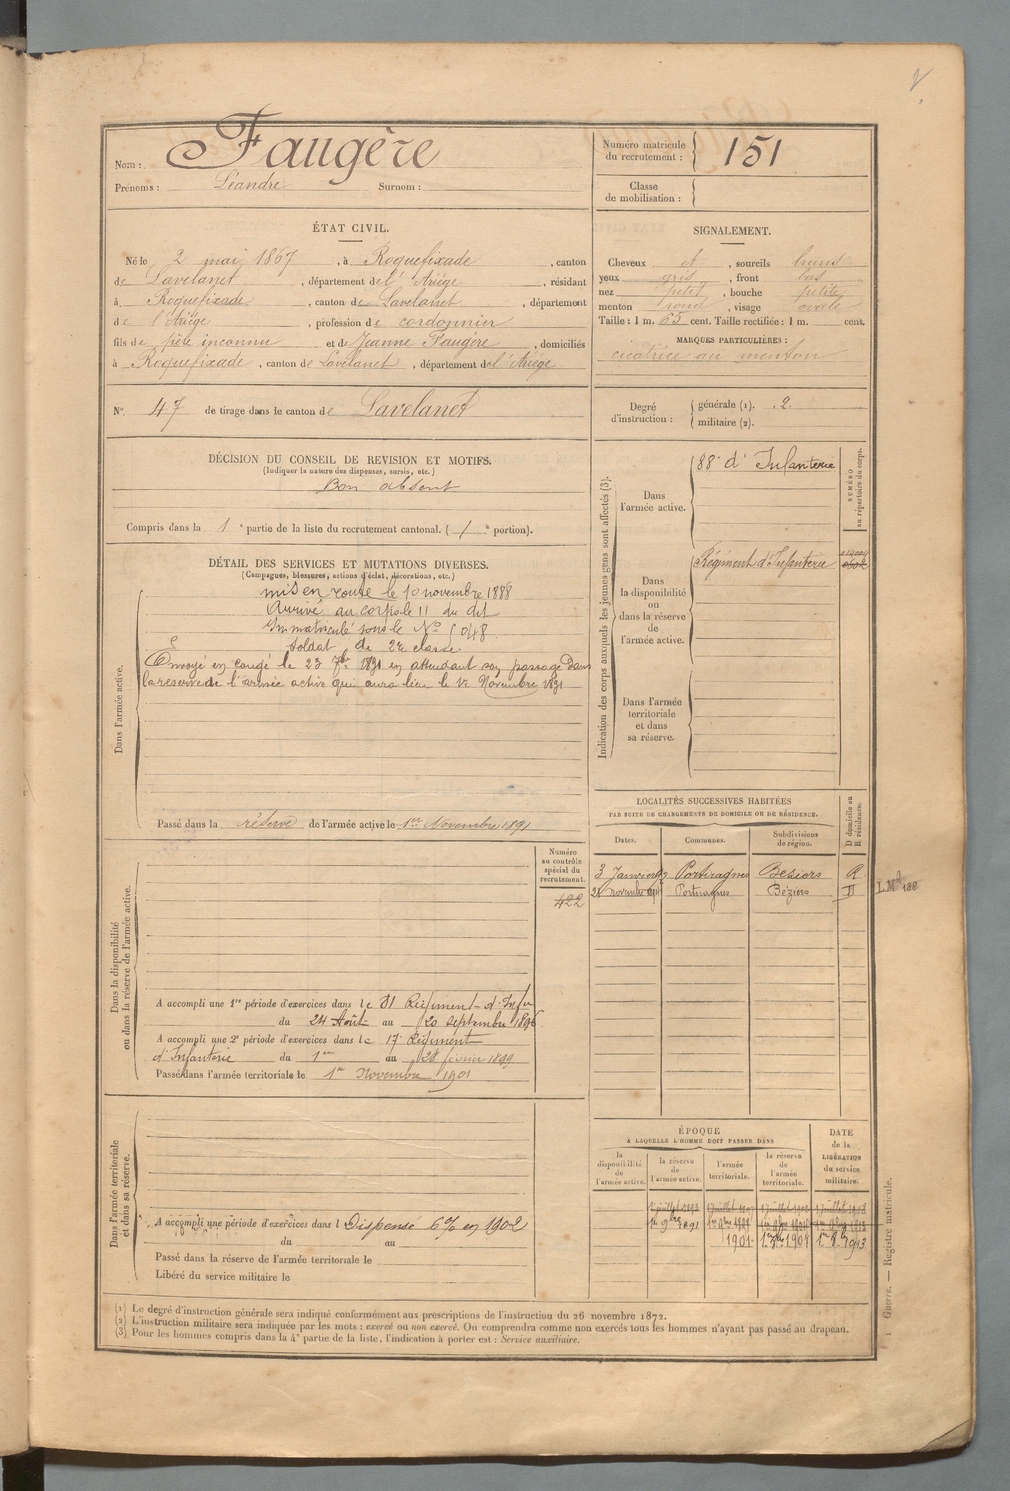 Nom : Faugère
Prénoms : Léandre Surnom :
Numéro matricule du recrutement : 151
Classe de mobilisation :
ÉTAT CIVIL.
Né le 2 mai 1867, à Roquefixade, canton
de Lavelanet, département de l'Ariège, résidant
à Roquefixade, canton de Lavelanet, département
de l'Ariège, profession de cordonnier
fils de père inconnu et de Jeanne Faugère, domiciliés
à Roquefixade, canton de Lavelanet, département de l'Ariège
N° 47 de tirage dans le canton de Lavelanet
SIGNALEMENT.
Cheveux et, sourcils bruns
yeux gris, front bas
nez petit, bouche petite
menton rond, visage ovale
Taille : 1 m. 65 cent. Taille rectifiée : 1 m. cent.
MARQUES PARTICULIÈRES :
cicatrice au menton
Degré d'instruction : générale (1). 2
militaire (2).
DÉCISION DU CONSEIL DE REVISION ET MOTIFS.
(Indiquer la nature des dispenses, sursis, etc.)
Bon absent
Compris dans la 1e partie de la liste du recrutement cantonal. (1e portion).
DÉTAIL DES SERVICES ET MUTATIONS DIVERSES.
(Campagnes, blessures, actions d'éclat, décorations, etc.)
Dans l'armée active.
mis en route le 10 novembre 1888
Arrivé au corps le 11 du dit
Immatriculé sous le N° 5048
Soldat de 2e classe.
Envoyé en congé le 23 7bre 1891 en attendant son passage dans
la reserve de l'armée active qui aura lieu le 1er Novembre 1891
Passé dans la réserve de l'armée active le 1er Novembre 1891
Indication des corps auxquels les jeunes gens sont affectés (3).
NUMÉRO au répertoire du corps.
Dans l'armée active.
88e d'Infanterie
Dans la disponibilité ou dans la réserve de l'armée active.
Régiment d'Infanterie
Dans l'armée territoriale et dans sa réserve.
LOCALITÉS SUCCESSIVES HABITÉES
PAR SUITE DE CHANGEMENTS DE DOMICILE OU DE RÉSIDENCE.
Dates. Communes. Subdivisions de région. D domicile ou R résidence.
3 Janvier Portiragnes Beziers R
novembre Portiragnes Béziers D
Dans la disponibilité ou dans la réserve de l'armée active.
Numéro au contrôle spécial du recrutement.
422
A accompli une 1re période d'exercices dans le 81 Régiment d'Infie
du 24 Août au 20 septembre 1896
A accompli une 2e période d'exercices dans le 17e Régiment
d'Infanterie du 1er au 28 février 1899
Passé dans l'armée territoriale le 1er Novembre 1901
Dans l'armée territoriale et dans sa réserve.
A accompli une période d'exercices dans l Dispensé 6% en 1902
du au
Passé dans la réserve de l'armée territoriale le
Libéré du service militaire le
ÉPOQUE
A LAQUELLE L'HOMME DOIT PASSER DANS
la disponibilité de l'armée active. la réserve de l'armée active. l'armée territoriale. la réserve de l'armée territoriale.
DATE de la LIBÉRATION du service militaire.
1er 9bre 1891
1901
(1) Le degré d'instruction générale sera indiqué conformément aux prescriptions de l'instruction du 26 novembre 1872.
(2) L'instruction militaire sera indiquée par les mots : exercé ou non exercé. On comprendra comme non exercés tous les hommes n'ayant pas passé au drapeau.
(3) Pour les hommes compris dans la 4e partie de la liste, l'indication à porter est : Service auxiliaire.
Guerre. — Registre matricule.